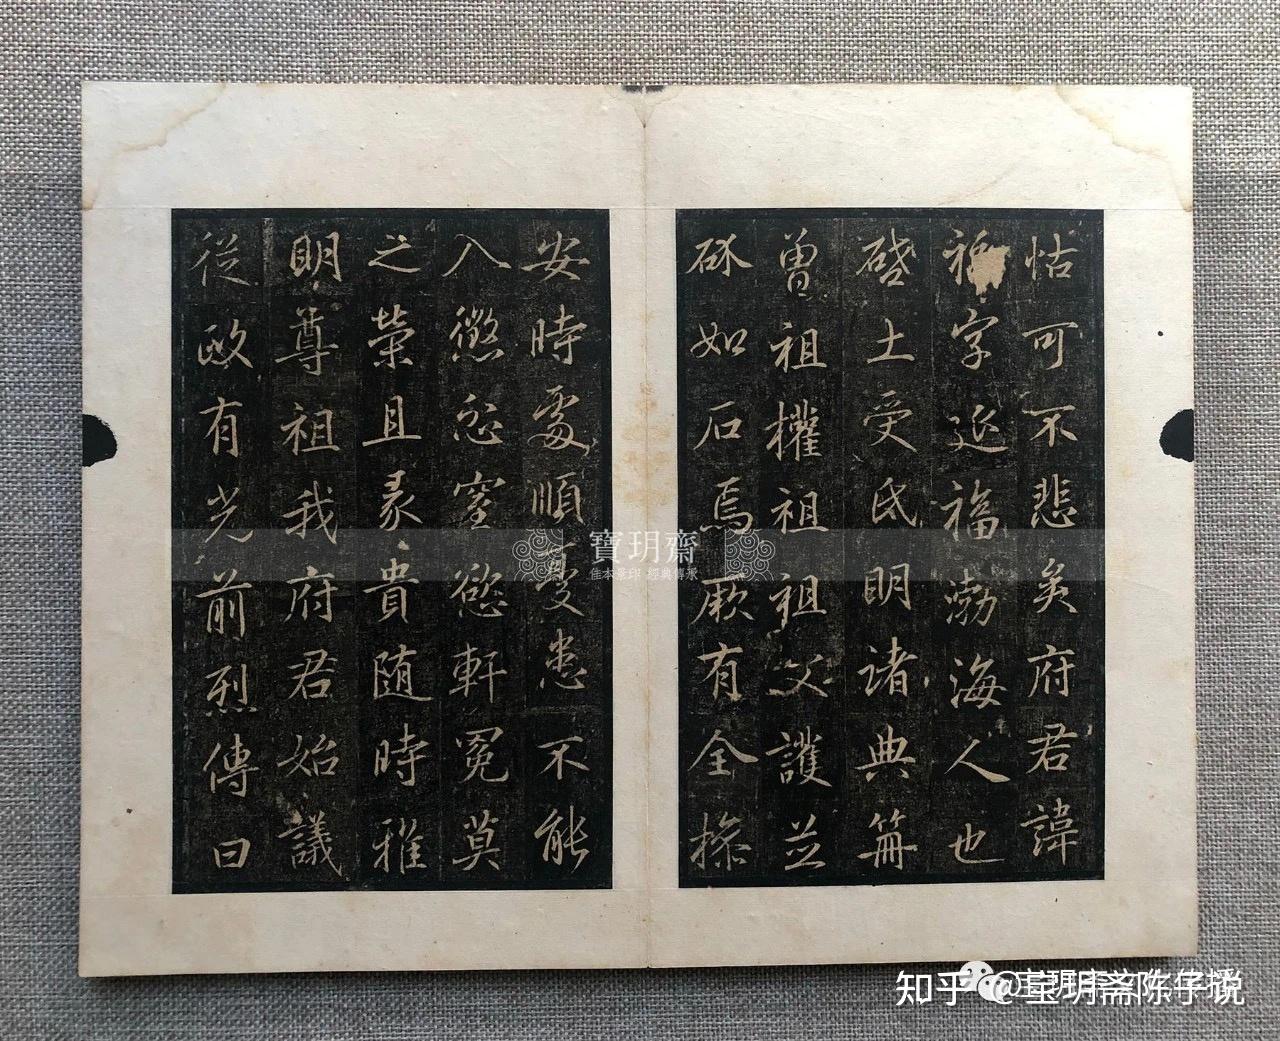 怙可不悲矣府君諱
祇字延福渤海人也
啓土受氏明諸典冊
曾祖權祖祖父護並
砅如石焉厥有全操
安時處順憂患不能
入懲忿窒慾軒冕莫
之榮且彖貴随時雅
明尊祖我府君始議
從政有光前烈傳曰
寶玥齋
佳本景印 經典傳承
知乎 @宝玥斋陈仔说